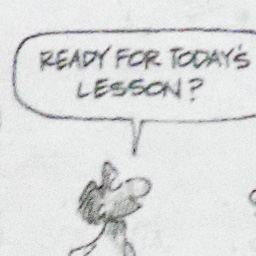 READY FOR TODAY'S
LESSON?